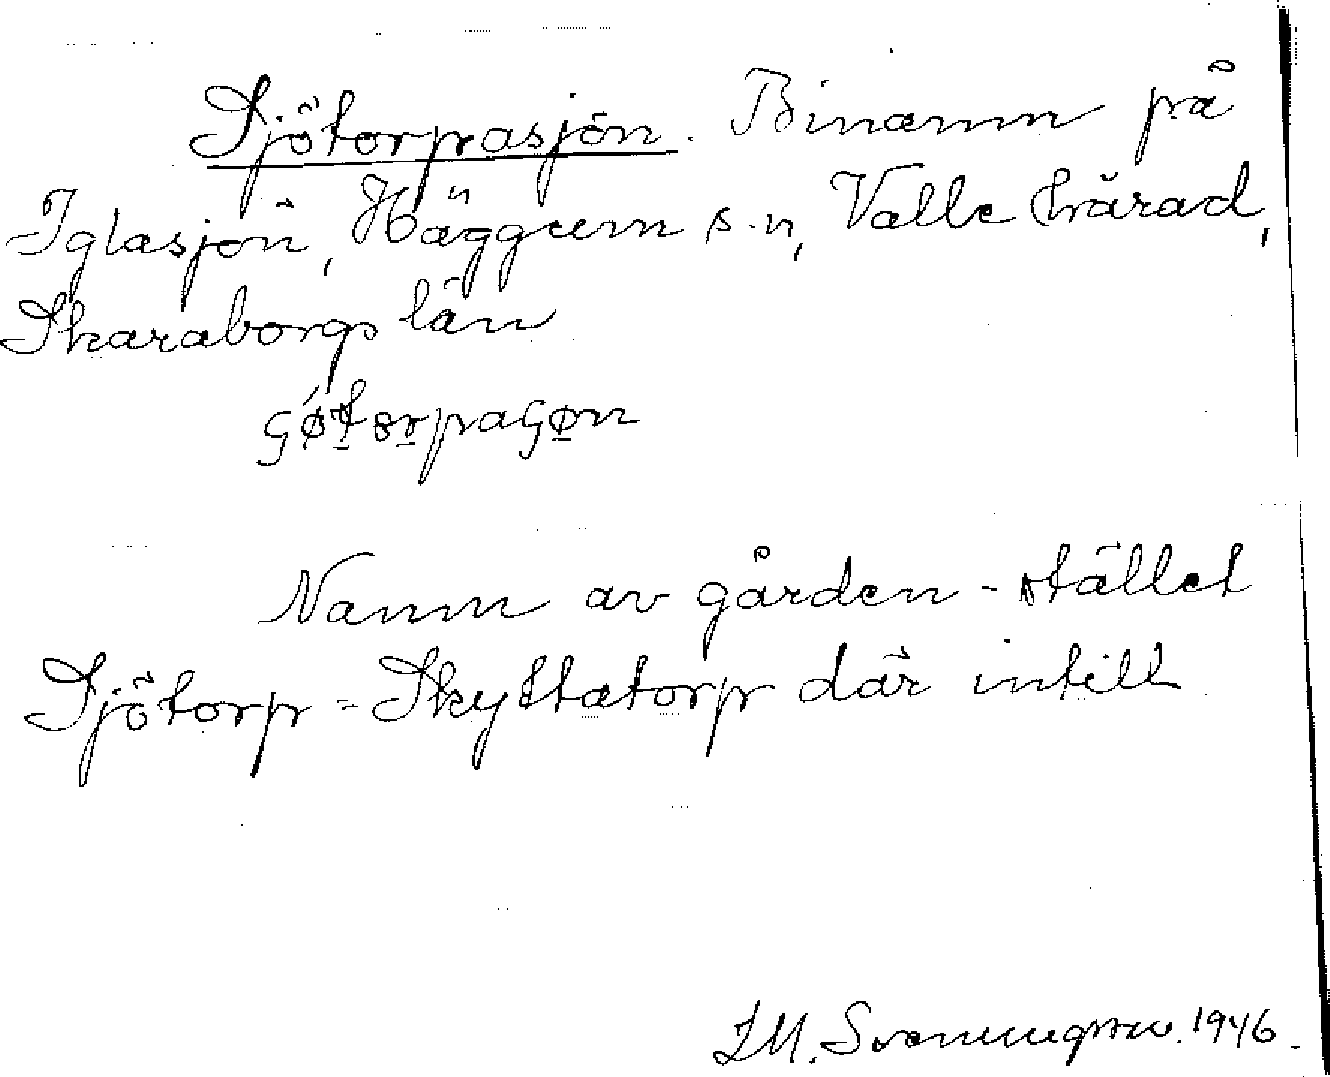 Sjötorpasjön. Binamn på
Iglasjön, Häggum s:n, Valle härad,
Skaraborgs län
Namn av gården - stället
Sjötorp = Skyttatorp där intill
1946.